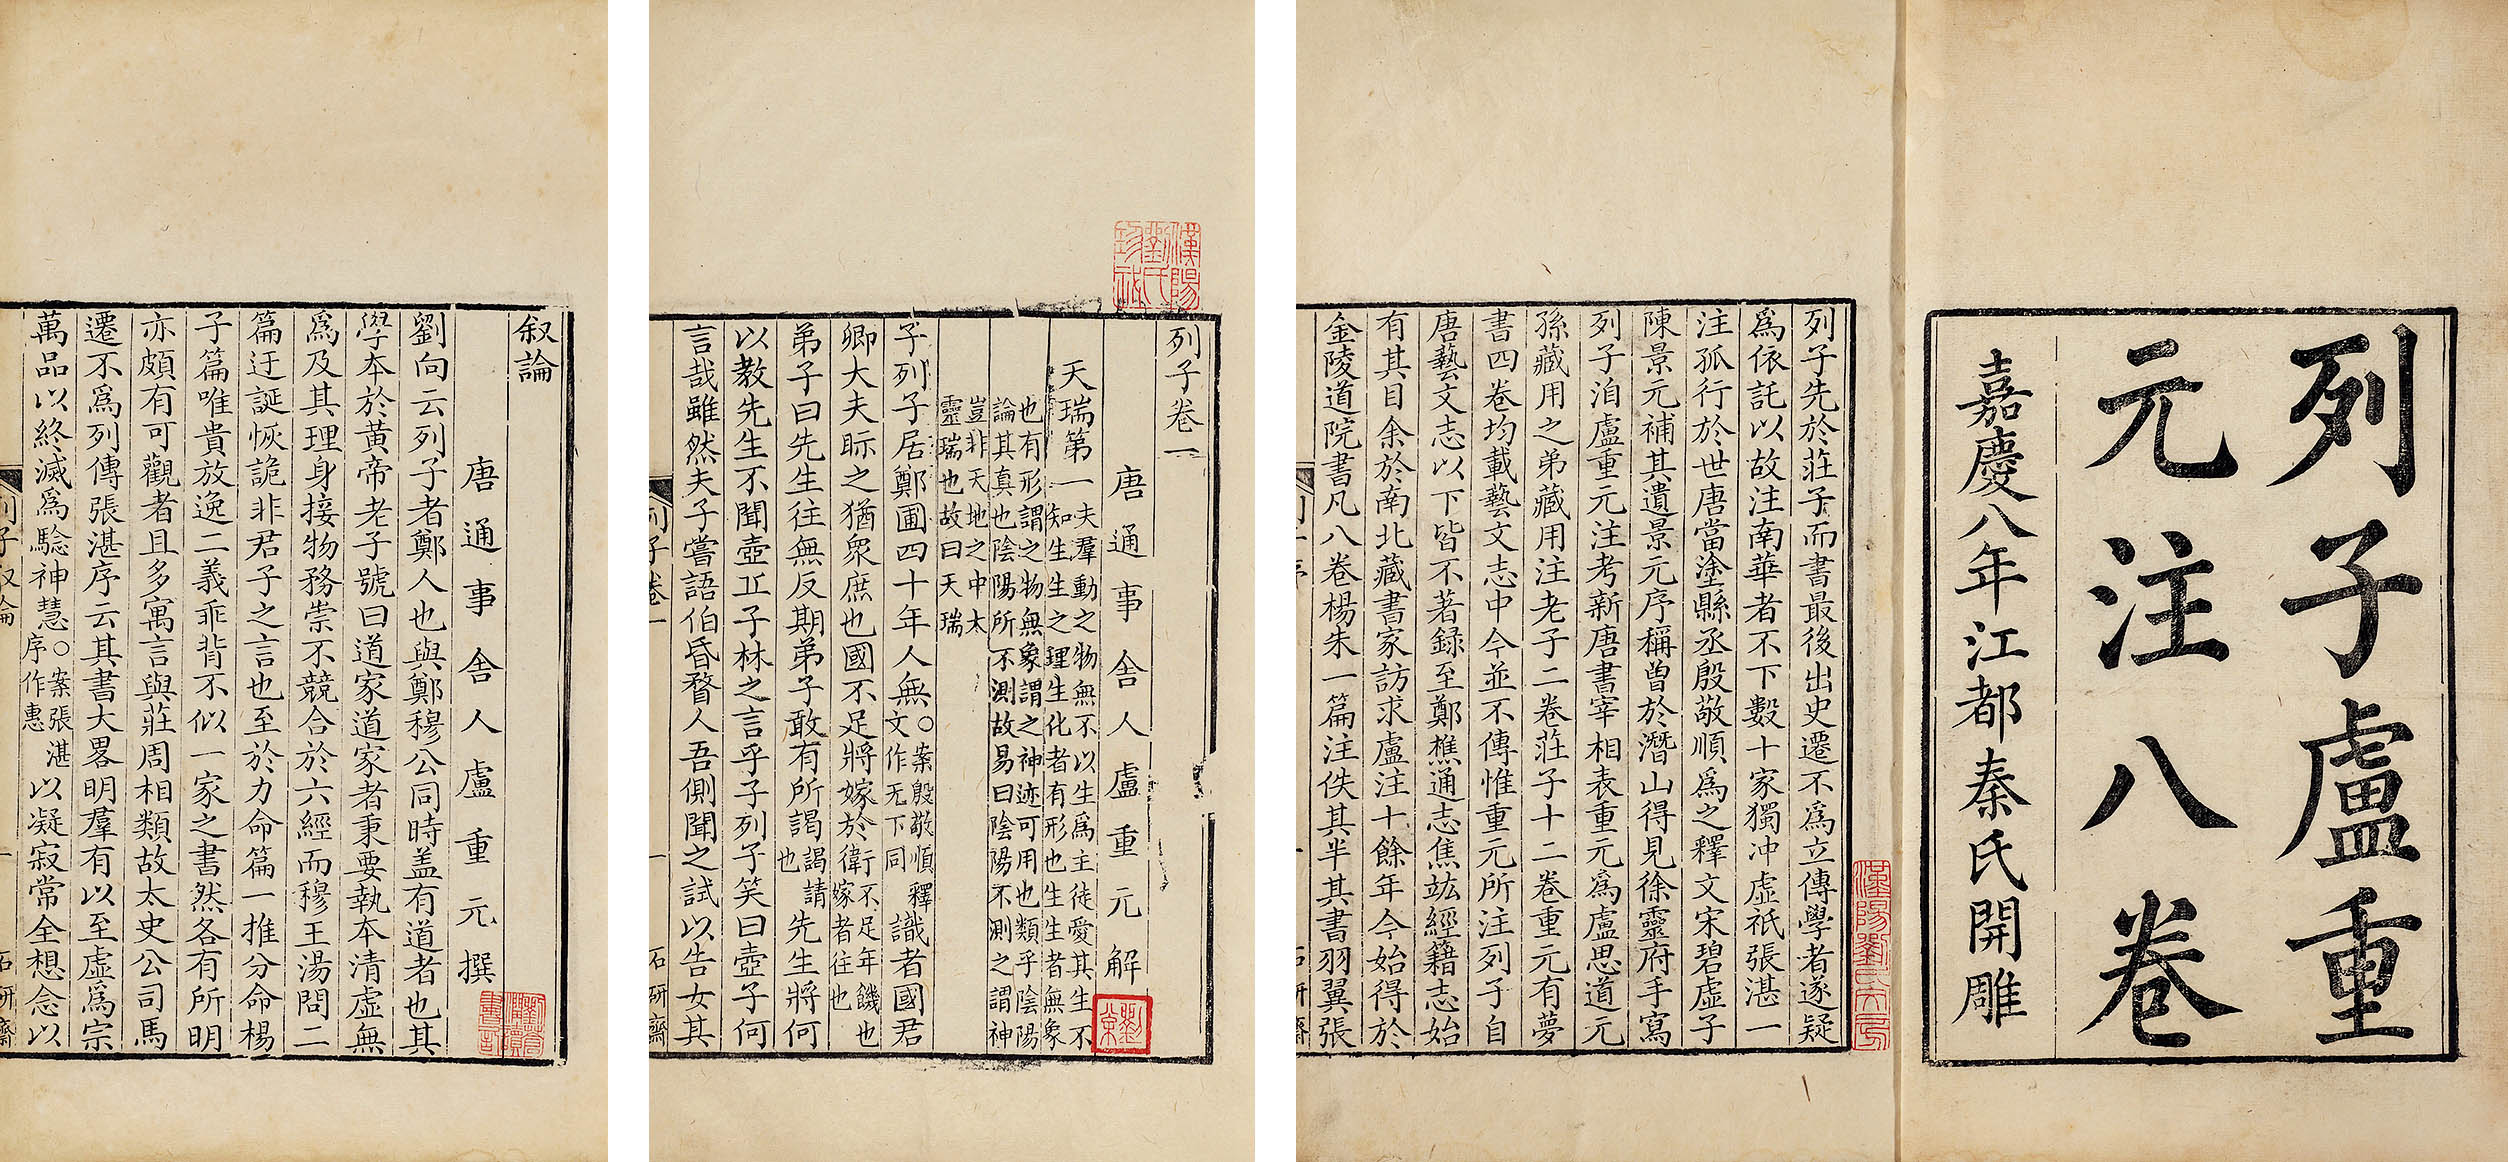 列子盧重
元注八卷
嘉慶八年江都秦氏開雕
列子先於莊子而書最後出史遷不爲立傳學者遂疑
爲依託以故注南華者不下數十家獨冲虛祇張湛一
注孤行於世唐當塗縣丞殷敬順爲之釋文宋碧虛子
陳景元補其遺景元序稱曾於潛山得見徐靈府手寫
列子洎盧重元注考新唐書宰相表重元爲盧思道元
孫藏用之弟藏用注老子二卷莊子十二卷重元有夢
書四卷均載藝文志中今並不傳惟重元所注列子自
唐藝文志以下皆不著録至鄭樵通志焦竑經籍志始
有其目余於南北藏書家訪求盧注十餘年今始得於
金陵道院書凡八卷楊朱一篇注佚其半其書羽翼張
石研齋
漢陽劉氏文房
漢陽劉氏
列子卷一
唐通事舍人盧重元解
天瑞第一
夫羣動之物無不以生爲主徒愛其生不
知生生之理生化者有形也生生者無象
也有形謂之物無象謂之神迹可用也類乎陰陽
論其真也陰陽所不測故易曰陰陽不測之謂神
豈非天地之中太
靈瑞也故曰天瑞
子列子居鄭圃四十年人無○案殷敬順釋文作无下同識者國君
卿大夫眎之猶衆庶也國不足將嫁於衛行不足年饑也嫁者往也
弟子曰先生往無反期弟子敢有所謁謁請也先生將何
以教先生不聞壺丘子林之言乎子列子笑曰壺子何
言哉雖然夫子嘗語伯昏瞀人吾側聞之試以告女其
列子卷一
一
石研齋
叙論
唐通事舍人盧重元撰
劉向云列子者鄭人也與鄭穆公同時盖有道者也其
學本於黃帝老子號曰道家道家者秉要執本清虛無
爲及其理身接物務崇不競合於六經而穆王湯問二
篇迂誕恢詭非君子之言也至於力命篇一推分命楊
子篇唯貴放逸二義乖背不似一家之書然各有所明
亦頗有可觀者且多寓言與莊周相類故太史公司馬
遷不爲列傳張湛序云其書大畧明羣有以至虛爲宗
萬品以終滅爲騐神慧○案張湛序作惠以凝寂常全想念以
列子叙論
一
石研齋